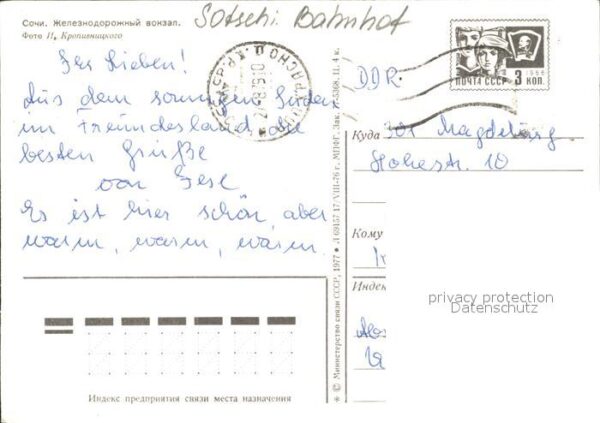 Сочи. Железнодорожный вокзал.
Фото И. Кропивницкого
Sotschi Bahnhof
Ihr Lieben!
Aus dem sonnigen Süden
im Freundesland die
besten Grüße
von
Es ist hier schön, aber
warm, warm, warm.
DDR
ПОЧТА СССР 3 КОП.
1966
Куда 301 Magdeburg
Hohestr. 10
Кому
Индекс
privacy protection
Datenschutz
© Министерство связи СССР, 1977
Индекс предприятия связи места назначения